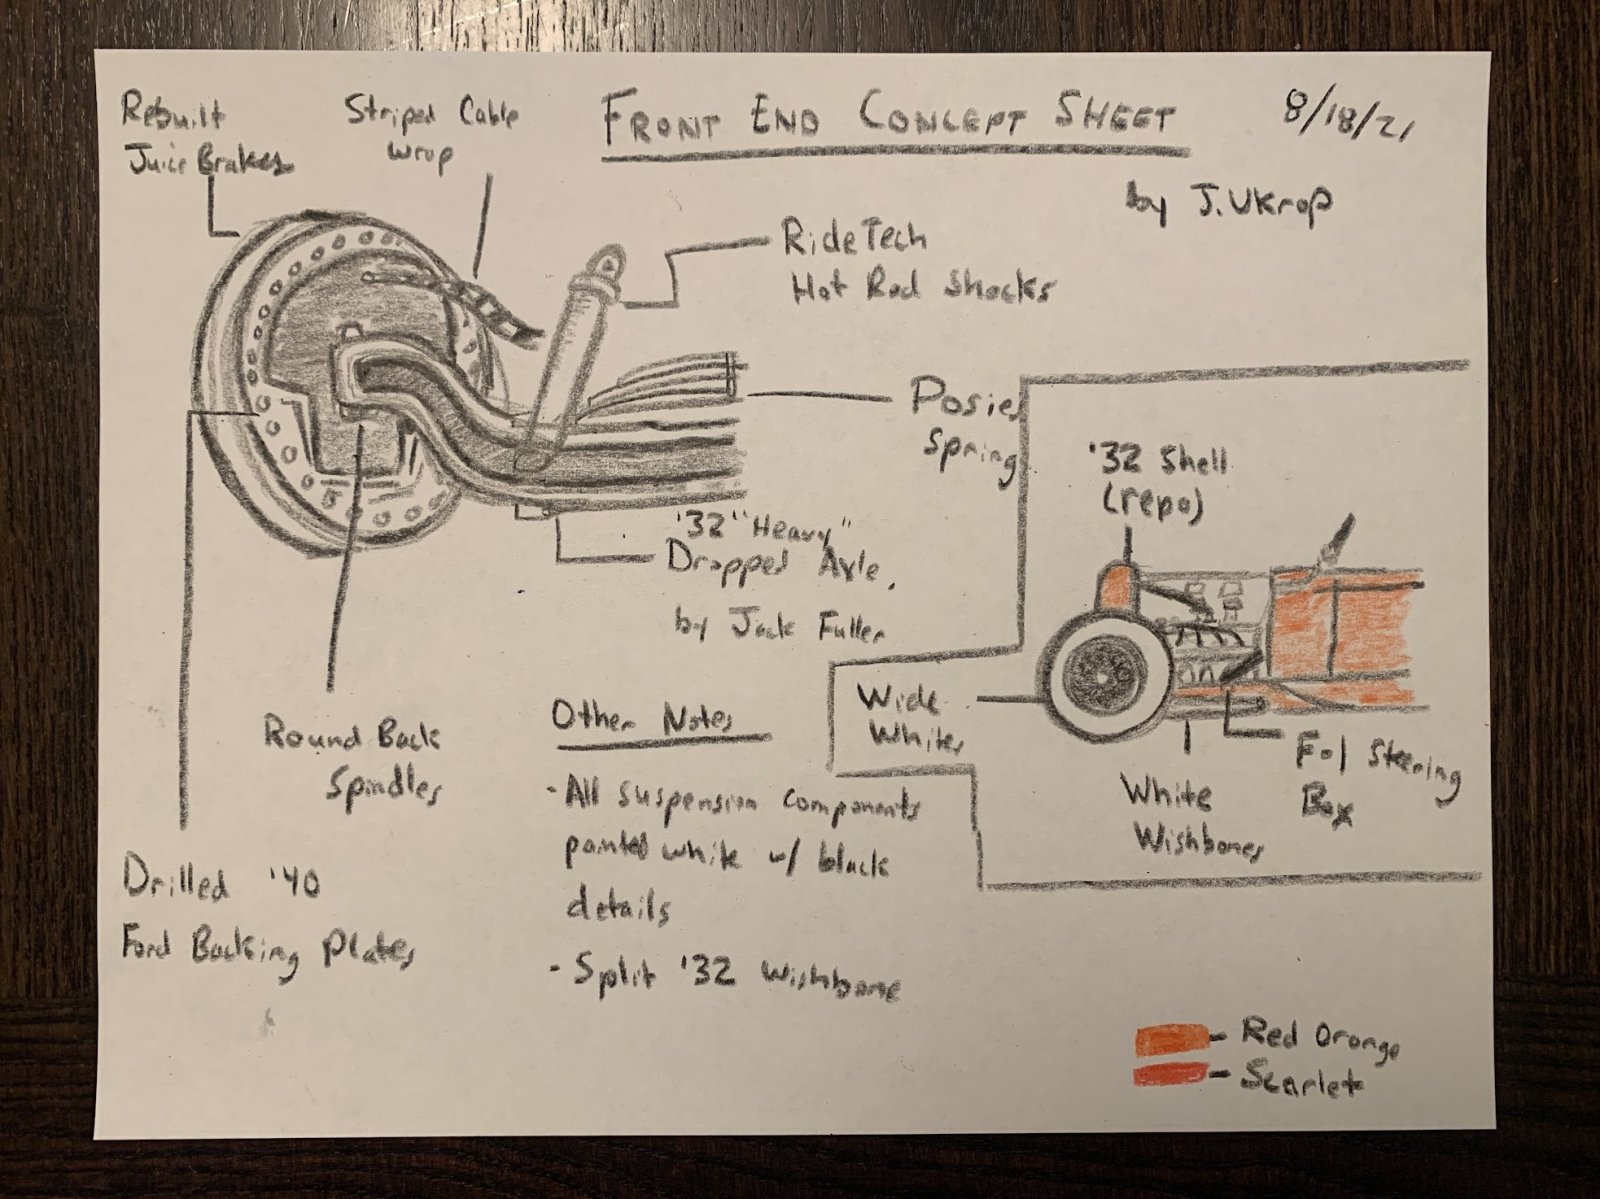 Rebuilt
Juice Brakes
Striped Cable
Wrap
FRONT END CONCEPT SHEET
8/18/21
by J. Ukrop
RideTech
Hot Rod Shocks
Posies
Spring
'32 "Heavy"
Dropped Axle
by Jack Fuller
'32 Shell
(repo)
Wide
Whites
F-1 Steering
Box
White
Wishbones
Round Back
Spindles
Drilled '40
Ford Backing Plates
Other Notes
- All suspension components
painted white w/ black
details
- Split '32 Wishbone
- Red Orange
- Scarlet